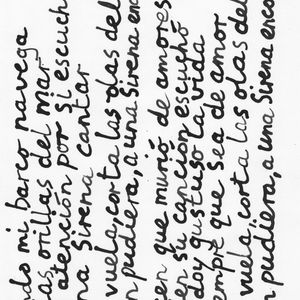 ndo mi barco navega
as orillas del mar
atención por si escuch
na Sirena cantar
vuela, corta las olas del
n pudiera, a una Sirena enc
cen que murió de amores
en su canción escuchó
doy gustoso la vida
empre que sea de amor
vuela, corta las olas del
n pudiera, a una Sirena enco